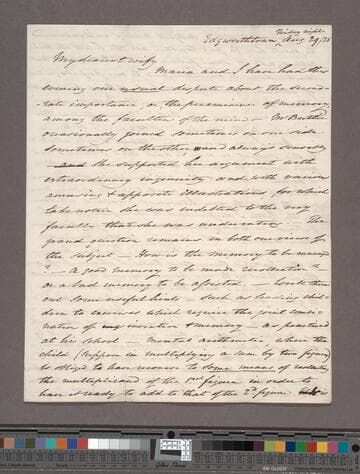 Friday night
Edgeworthtown, Aug 29/28
My dearest wife
Maria and I have had this
evening one usual dispute about the second-
-rate importance, or the preeminence of memory,
among the faculties of the mind – Mr Butler
occasionally joined sometimes on one side
sometimes on the other and always sensibly
and she supported her argument with
extraordinary ingenuity and with various
amusing & apposite illustrations, for which
take notice she was indebted to the very
faculty that she was undervaluing. The
grand question remains in both our views of
the subject – How is the memory to be managed
? – A good memory to be made recollective?
or a bad memory to be assisted –
out some useful hints such as leading chil-
dren to exercises which require the joint combi-
nation of invention & memory – as practised
at his school – Mental arithmetic, where the
child (suppose in multiplying a sum by two figures)
is obliged to have recourse to some means of
the multiplicand of the 1st figure in order to
have it ready to add to that of the 2d figure